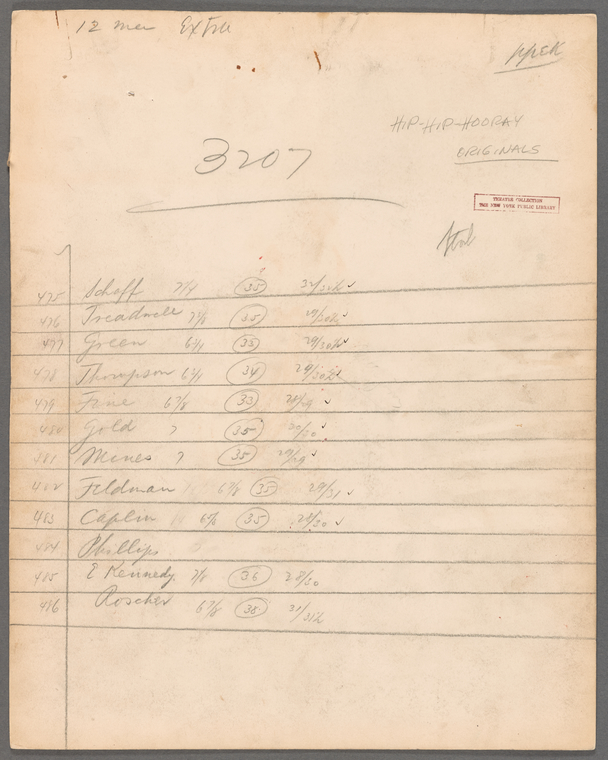 12 men Extra
HIP-HIP-HOORAY
ORIGINALS
3207
THEATRE COLLECTION
THE NEW YORK PUBLIC LIBRARY
475 Schaff 7 1/4 35
476 Treadwell 7 1/8 35 29/30½ ✓
477 Green 6 3/4 35 29/30½ ✓
478 Thompson 6 3/4 34 29/30½ ✓
479 Fine 6 7/8 33 28/29 ✓
480 Gold 7 35 30/30 ✓
481 Menes 7 35 29/29 ✓
482 Feldman 6 7/8 35 29/31 ✓
483 Caplin 6 7/8 35 28/30 ✓
484 Phillips
485 E Kennedy 7 1/8 36 28/30
486 Roscher 6 7/8 38 31/31½